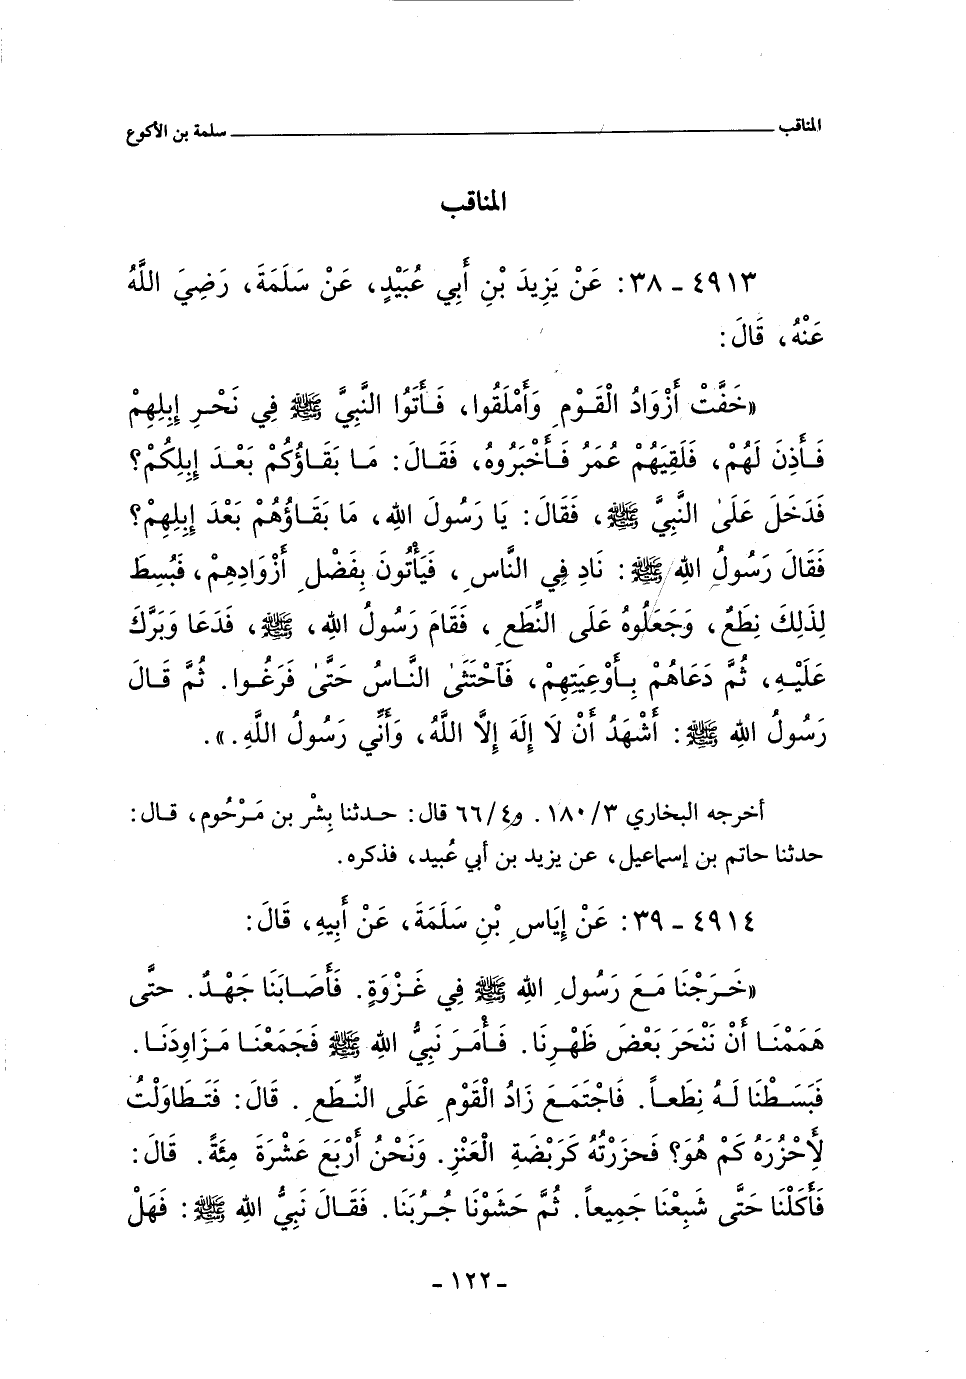 المناقب ـــــــــــــــــــــــــــــــــــــــ سلمة بن الأكوع
المناقب
٤٩١٣ - ٣٨: عَنْ يَزِيدَ بْنِ أَبِي عُبَيْدٍ، عَنْ سَلَمَةَ، رَضِيَ اللَّهُ
عَنْهُ، قَالَ:
«خَفَّتْ أَزْوَادُ الْقَوْمِ وَأَمْلَقُوا، فَأَتَوُا النَّبِيَّ ﷺ فِي نَحْرِ إِبِلِهِمْ
فَأَذِنَ لَهُمْ، فَلَقِيَهُمْ عُمَرُ فَأَخْبَرُوهُ، فَقَالَ: مَا بَقَاؤُكُمْ بَعْدَ إِبِلِكُمْ؟
فَدَخَلَ عَلَىٰ النَّبِيَّ ﷺ، فَقَالَ: يَا رَسُولَ اللهِ، مَا بَقَاؤُهُمْ بَعْدَ إِبِلِهِمْ؟
فَقَالَ رَسُولُ اللهِ ﷺ: نَادِ فِي النَّاسِ، فَيَأْتُونَ بِفَضْلِ أَزْوَادِهِمْ، فَبُسِطَ
لِذَلِكَ نِطَعٌ، وَجَعَلُوهُ عَلَى النِّطَعِ، فَقَامَ رَسُولُ اللهِ، ﷺ، فَدَعَا وَبَرَّكَ
عَلَيْهِ، ثُمَّ دَعَاهُمْ بِأَوْعِيَتِهِمْ، فَآحْتَثَىٰ النَّاسُ حَتَّىٰ فَرَغُوا. ثُمَّ قَالَ
رَسُولُ اللهِ ﷺ: أَشْهَدُ أَنْ لَا إِلَهَ إِلَّا اللَّهُ، وَأَنِّي رَسُولُ اللَّهِ.».
أخرجه البخاري ١٨٠/٣. و٦٦/٤ قال: حدثنا بِشْر بن مَرْحُوم، قال:
حدثنا حاتم بن إسماعيل، عن يزيد بن أبي عُبيد، فذكره.
٤٩١٤ - ٣٩: عَنْ إِيَاسِ بْنِ سَلَمَةَ، عَنْ أَبِيهِ، قَالَ:
«خَرَجْنَا مَعَ رَسُولِ اللهِ ﷺ فِي غَزْوَةٍ. فَأَصَابَنَا جَهْدٌ. حتَّى
هَمَمْنَا أَنْ نَنْحَرَ بَعْضَ ظَهْرِنَا. فَأَمَرَ نَبِيُّ اللهِ ﷺ فَجَمَعْنَا مَزَاوِدَنَا.
فَبَسَطْنَا لَهُ نِطَعاً. فَاجْتَمَعَ زَادُ الْقَوْمِ عَلَى النِّطَعِ. قَالَ: فَتَطَاوَلْتُ
لأَحْزُرَهُ كَمْ هُوَ؟ فَحزَرْتُهُ كَرَبْضَةِ الْعَنْزِ. وَنَحْنُ أَرْبَعَ عَشْرَةَ مِئَةً. قَالَ:
فَأَكَلْنَا حَتَّى شَبِعْنَا جَمِيعاً. ثُمَّ حَشَوْنَا جُرُبَنَا. فَقَالَ نَبِيُّ اللهِ ﷺ: فَهَلْ
- ١٢٢ -